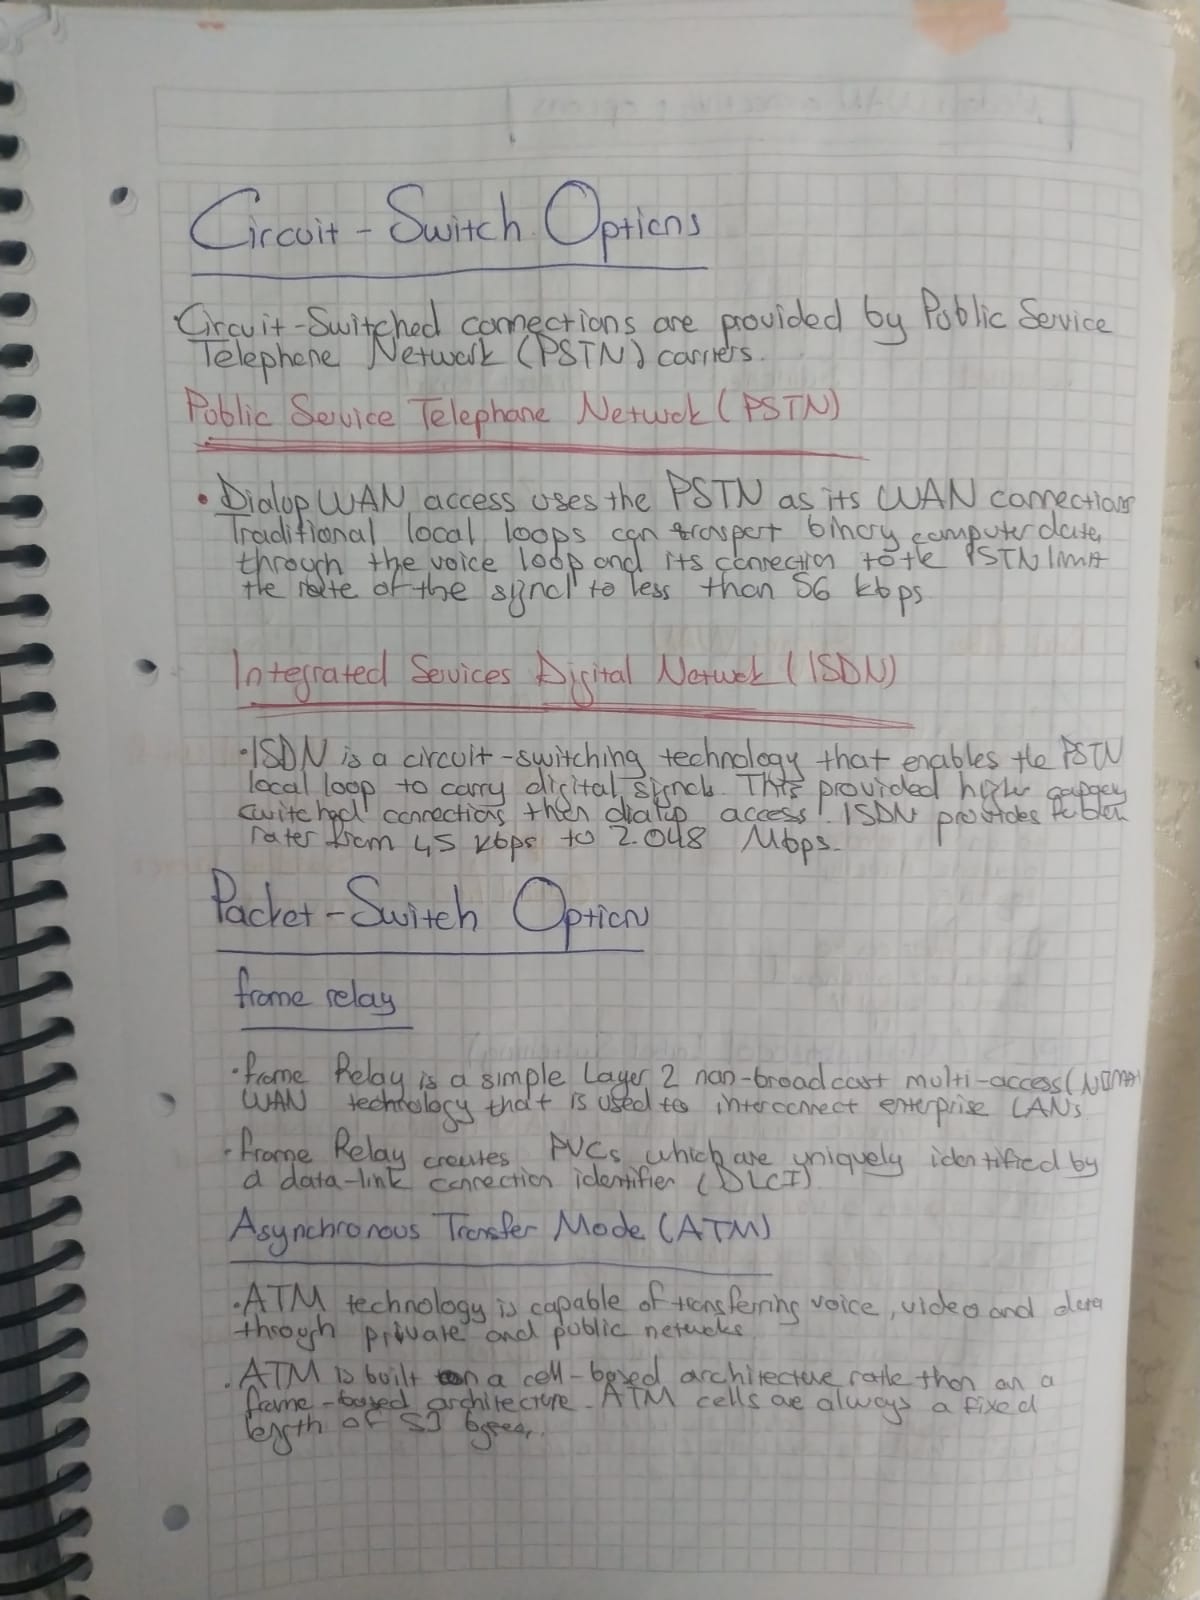 Circuit - Switch Options
Circuit-Switched connections are provided by Public Service
Telephone Network (PSTN) carriers.
Public Service Telephone Netwok (PSTN)
• Dialup WAN access uses the PSTN as its WAN connections
Traditional local loops can transport binary computer data,
through the voice loop and its connection to the PSTN limit
the rate of the signal to less than 56 kbps
Integrated Sevices Digital Netwok (ISDN)
• ISDN is a circuit-switching technology that enables the PSTN
local loop to carry digital signals. This provided higher capacity
switched connections then dialup access. ISDN provides for
rates from 45 kbps to 2.048 Mbps.
Packet-Switch Option
frame relay
• frame Relay is a simple Layer 2 non-broadcast multi-access
WAN technology that is used to interconnect enterprise LANs
• frame Relay creates PVCs which are uniquely identified by
a data-link connection identifier (DLCI)
Asynchronous Transfer Mode (ATM)
• ATM technology is capable of transferring voice, video and data
through private and public netwoks
• ATM is built on a cell-based architecture rathe than on a
frame-based architecture. ATM cells are always a fixed
length of 53 bytes.